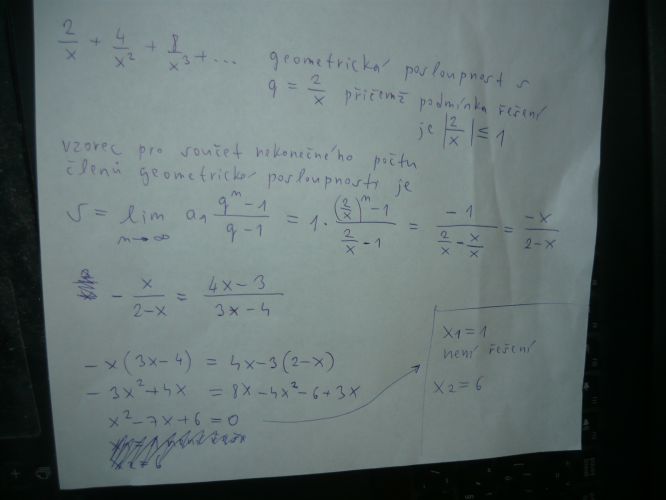 2/x + 4/x² + 8/x³ + ...
geometrická posloupnost s
q = 2/x přičemž podmínka řešení
je |2/x| ≤ 1
vzorec pro součet nekonečného počtu
členů geometrické posloupnosti je
S = lim n→∞ a₁ (qⁿ-1)/(q-1) = 1 · ((2/x)ⁿ-1)/(2/x - 1) = -1/(2/x - x/x) = -x/(2-x)
- x/(2-x) = (4x-3)/(3x-4)
-x(3x-4) = 4x-3(2-x)
-3x²+4x = 8x-4x²-6+3x
x²-7x+6=0
x₁=1
není řešení
x₂=6
x₂=6